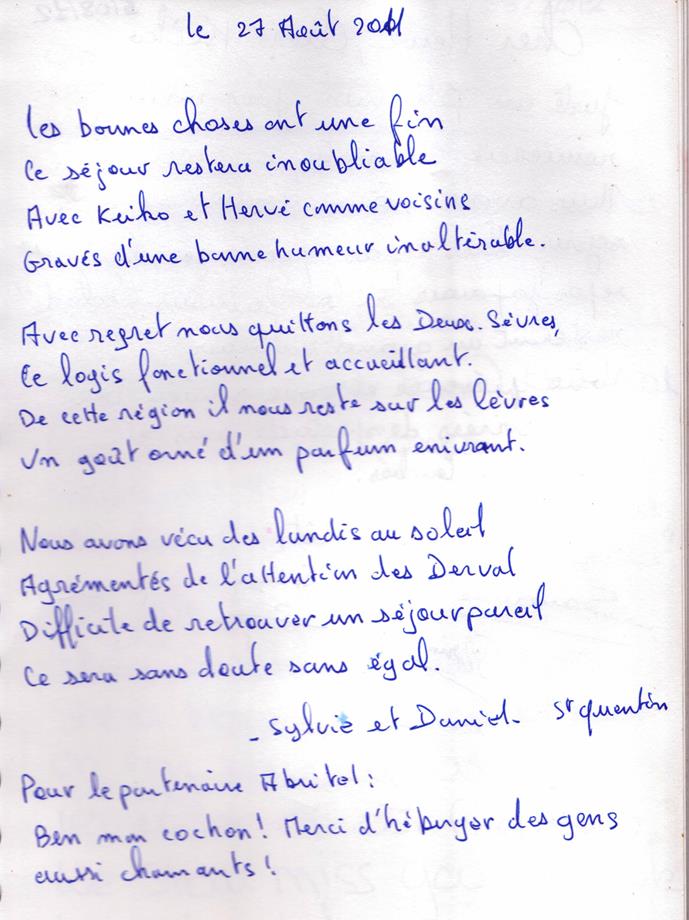 le 27 Août 2011
Les bonnes choses ont une fin
Ce séjour restera inoubliable
Avec Keiko et Hervé comme voisins
Gravés d'une bonne humeur inaltérable.
Avec regret nous quittons les Deux-Sèvres,
Ce logis fonctionnel et accueillant.
De cette région il nous reste sur les lèvres
Un goût orné d'un parfum enivrant.
Nous avons vécu des lundis au soleil
Agrémentés de l'attention des Derval
Difficile de retrouver un séjour pareil
Ce sera sans doute sans égal.
- Sylvie et Daniel - St Quentin
Pour le partenaire Abritel :
Ben mon cochon ! Merci d'héberger des gens
aussi charmants !